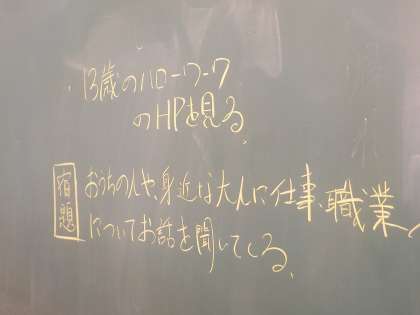 ・13歳のハローワーク
のHPを見る。
宿題 おうちの人や、身近な大人に仕事、職業
についてお話を聞いてくる。